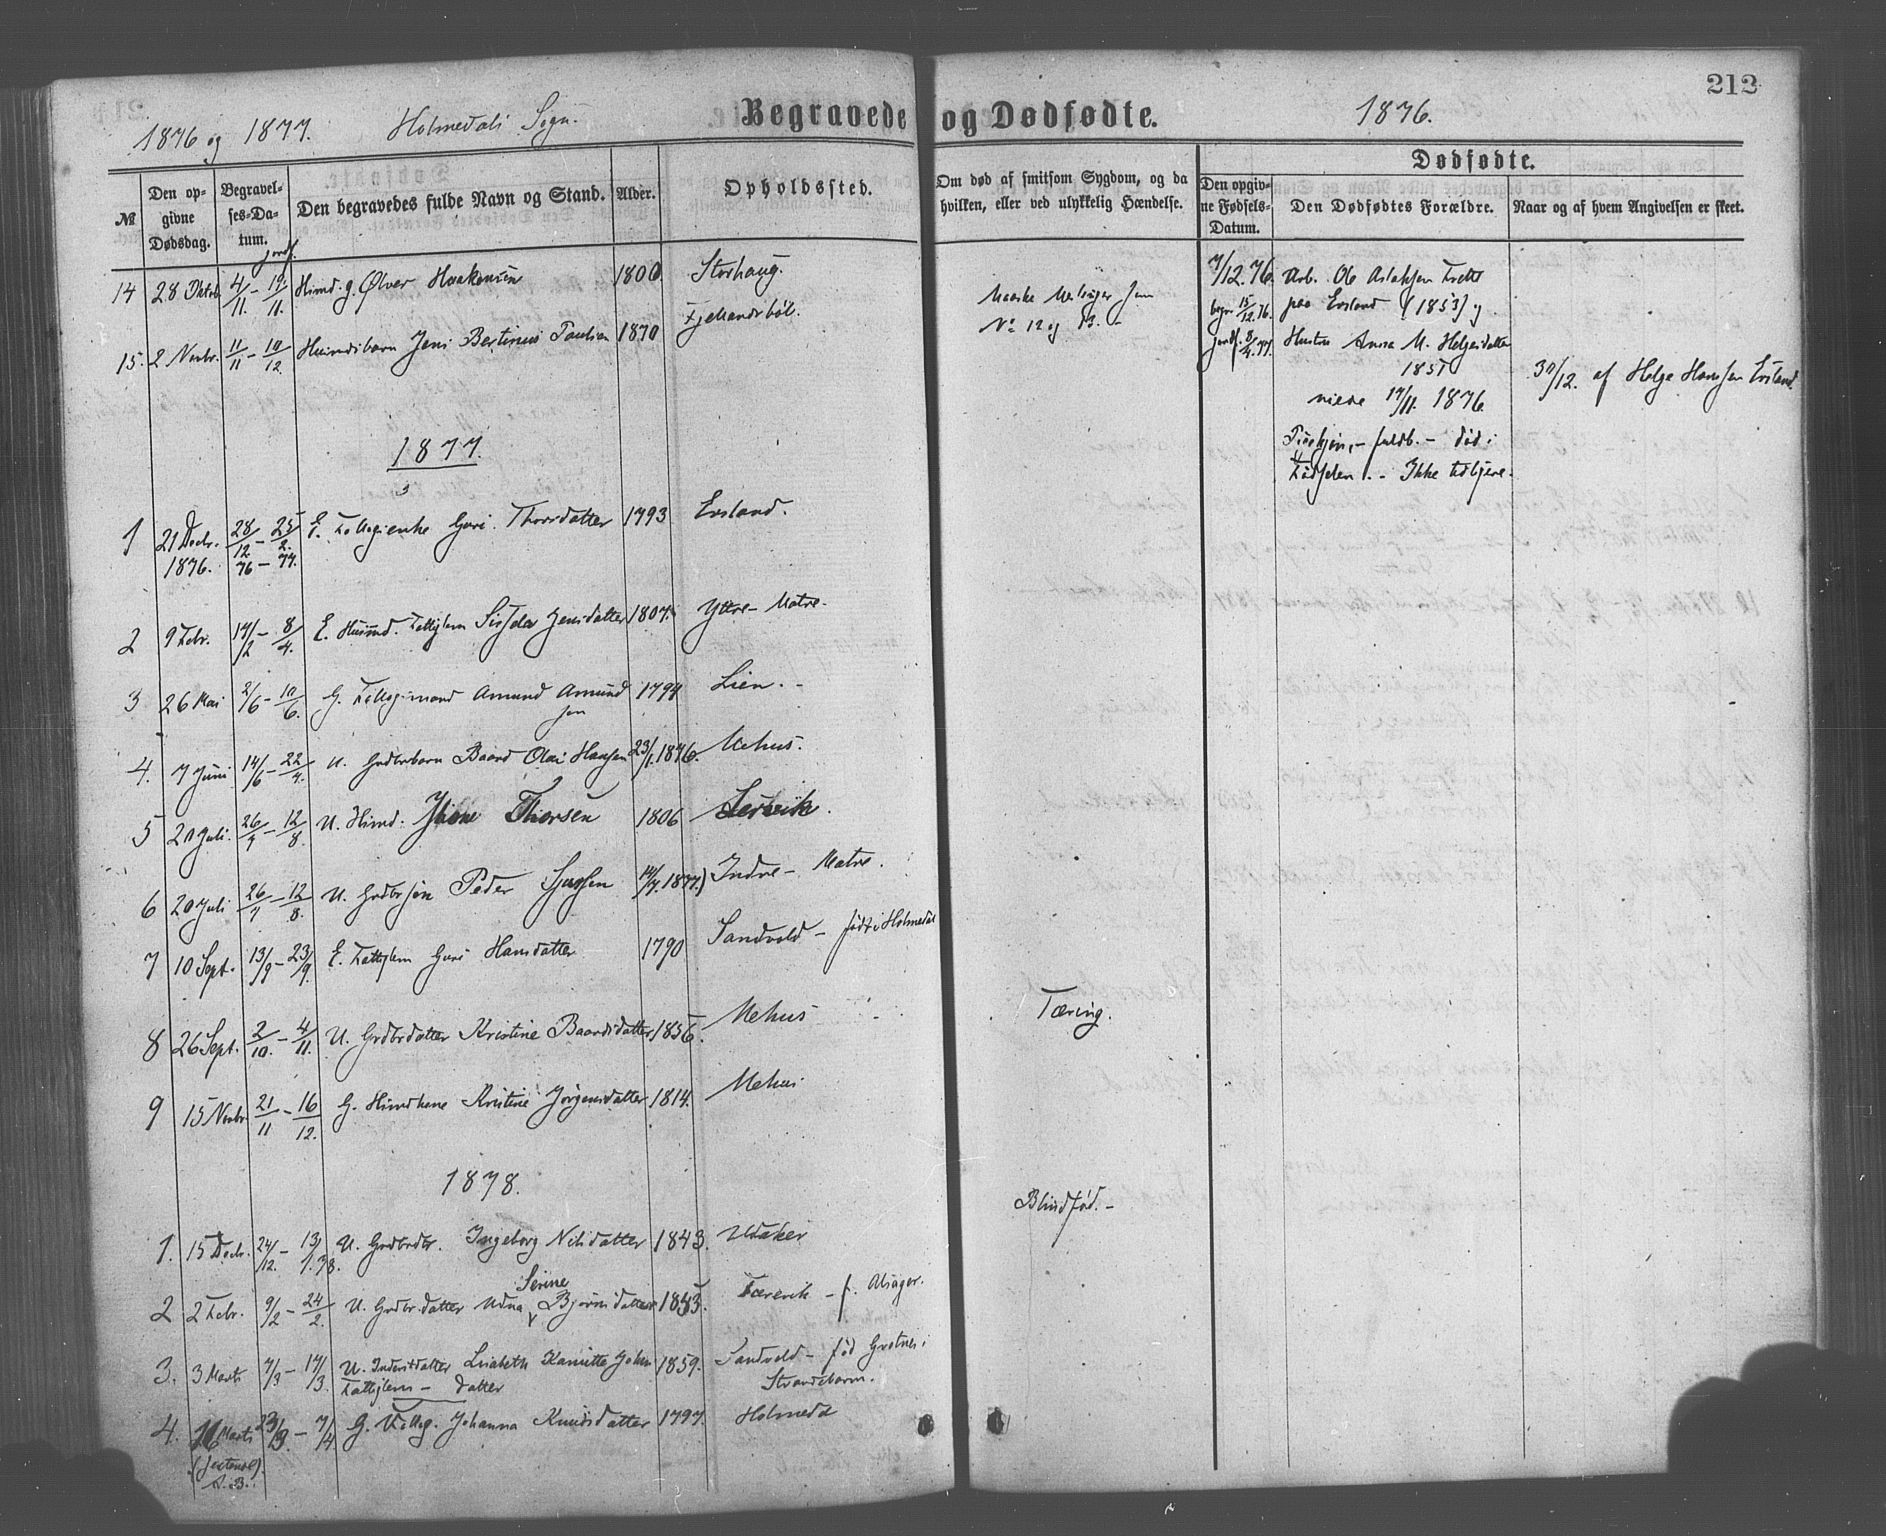 212
1876 og 1877. Holmedals Sogn. Begravede og Dødfødte. 1876.
Dødfødte.
№ Den opgivne Dødsdag. Begravelses-Datum. Den begravedes fulde Navn og Stand. Alder. Opholdssted. Om død af smitsom Sygdom, og da hvilken, eller ved ulykkelig Hændelse. Den opgivne Fødsels-Datum. Den Dødfødtes Forældre. Naar og af hvem Angivelsen er skeet.
jordf.
14 28 Oktob. 4/11 - 19/11. Huusmd. g. Ølver Haakensen 1800. Storhaug.
15. 2 Novbr. 11/11 - 10/12. Huusmdsbarn Jens Bertinius Paulsen 1870 Fjellandsbøl.
Maaske Meslinger som
No 12 og 13. -
7/12.76. Arb. Ole Aslaksen
begr. 15/12.76. paa Evsland (1853) g.
jordf. 8/4.77. Hustru Anna M. Helgesdatter
1851
viede 17/11. 1876.
Pigekjøn, - fuldb. - død i
Fødselen. - Ikke tidligere.
30/12. af Helge Hansen Evsland
1877.
1 21 Decbr. 1876. 28/12 76 - 25/2. 77. E. Fattigenke Guri Thorsdatter 1793 Evsland.
2 9 Febr. 17/2 - 8/4. E. Huusmd. Fattiglem Jensdatter 1807. Yttre - Matre.
3 26 Mai 2/6 - 10/6. G. Amund Amundsen 1794 Lien. -
4. 7 Juni 14/6 - 22/4. U. Grdbrbarn Baard Olai Hansen 23/1.1876. Mehus.
5 20 Juli. 26/7 - 12/8. U. Huusmd. Thorsen 1806 Leirvik.
6 20 Juli 26/7 - 12/8. U. Grdbrsøn Peder Sjursen 14/7.1877.) Indre - Matre.
7 10 Sept. 13/9 - 23/9. E. Fattiglem Guri Hansdatter 1790 Sandvold - født i Holmedal
8 26 Sept. 2/10. - 4/11. U. Grdbrdatter Kristine Baardsdatter 1856. Mehus Tæring.
9 15 Novbr 21/11 - 16/12. G. Huusmdkone Kristine Jørgensdatter 1814. Mehus
1878.
1. 15 Decbr. 24/12. - 13/1.78. U. Grdbrdtr. Ingeborg Nilsdatter 1843. Udaker Blindfød. -
2 2 Febr. 9/2 - 24/2. U. Grdbrdatter Udna Serine Bjørnsdatter Tærevik - f. Alsager.
3. 3 Marts 7/3 - 17/3. U. Inderstdatter Lisabeth Kamitte Johnsdatter 1859. Sandvold - fød Grotnes i
Fattiglem - Strandebarm.
4. 16 Marts 23/3. - 7/4 G. Johanna Knudsdatter 1797. Holmedal
A. B.